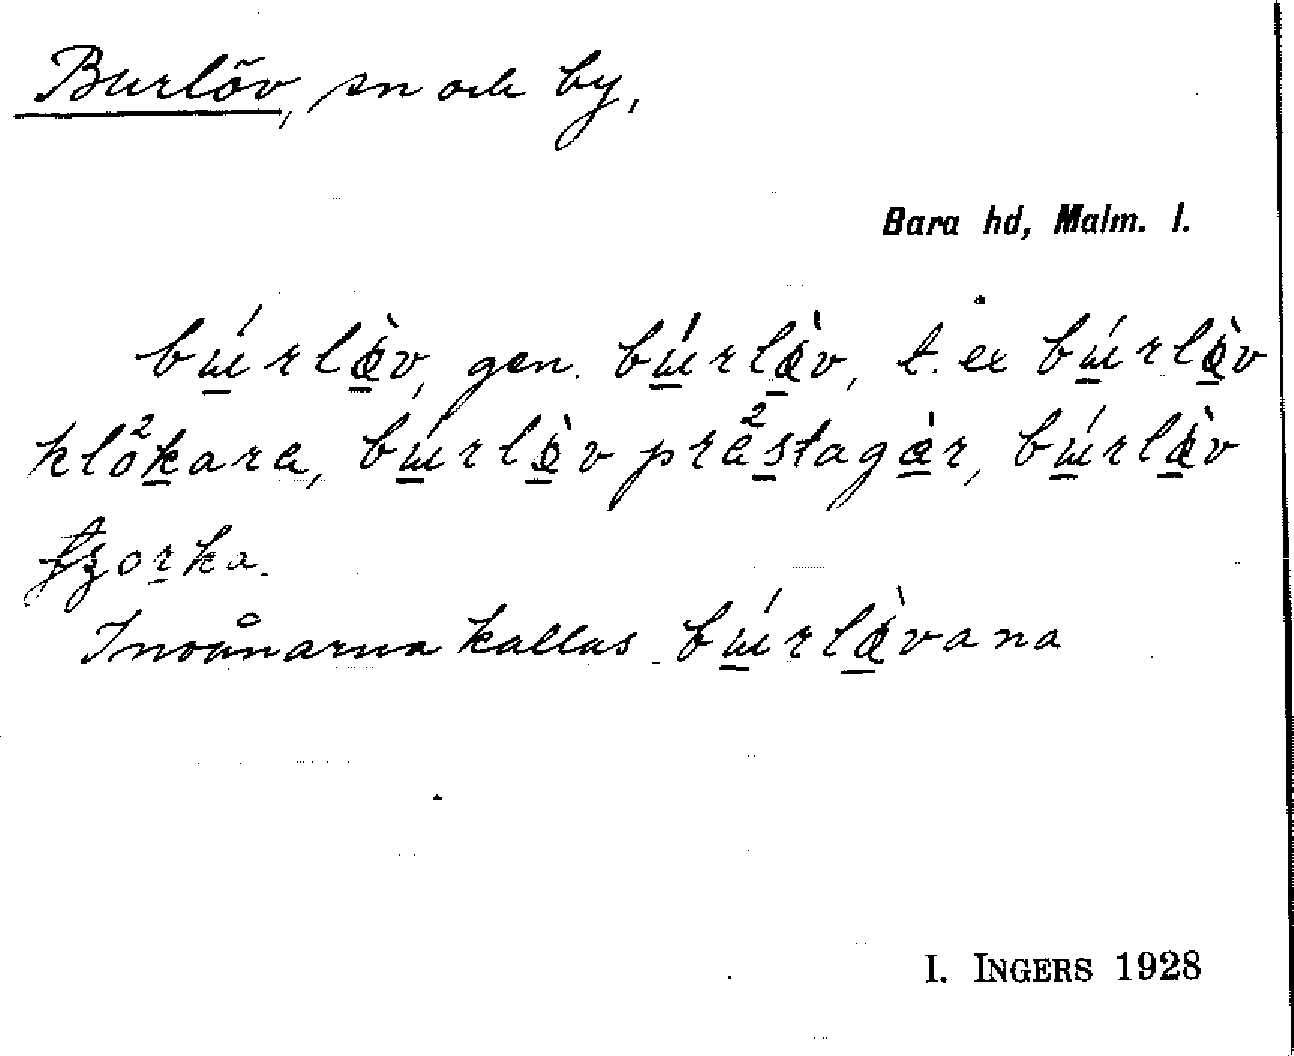 Burlöv, sn och by,
Bara hd, Malm. l.
búrlòv, gen. búrlòv, t. ex búrlòv
klô²kara, búrlòv prä²stagàr, búrlòv
Invånarna kallas búrlòvana
I. INGERS 1928